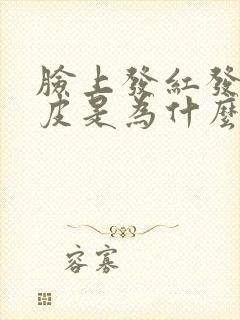 臉上發紅發
皮是為什麼
容寡